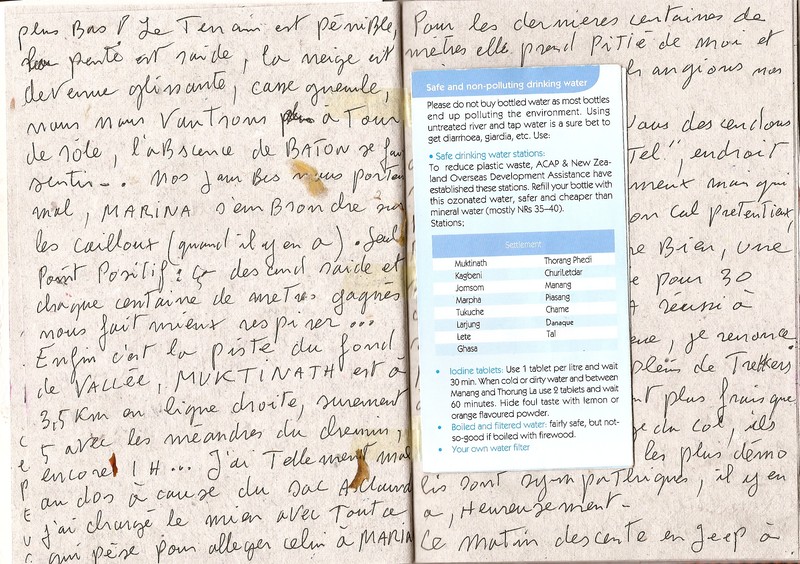 plus Bas ! Le Terrain est pénible,
la pente est raide, la neige est
devenue glissante, casse gueule,
nous nous vautrons à Tour
de rôle, l'absence de BATON se fait
sentir... Nos jambes nous portent
mal, MARINA s'emBronche sur
les cailloux (quand il y en a). Seul
Point Positif : ça descend raide et
chaque centaine de metres gagnés
nous fait mieux respirer...
Enfin c'est la piste du fond
de VALLÉE, MUKTINATH est à
3,5 Km en ligne droite, surement
5 avec les méandres du chemin,
encore 1H... J'ai Tellement mal
au dos à cause du sac
j'ai chargé le mien avec Tout ce
qui pèse pour alleger celui à MARINA
Pour les dernieres centaines de
mètres elle prend Pitié de moi et
changions nos
Safe and non-polluting drinking water
Please do not buy bottled water as most bottles
end up polluting the environment. Using
untreated river and tap water is a sure bet to
get diarrhoea, giardia, etc. Use:
• Safe drinking water stations:
To reduce plastic waste, ACAP & New Zea-
land Overseas Development Assistance have
established these stations. Refill your bottle with
this ozonated water, safer and cheaper than
mineral water (mostly NRs 35–40).
Stations;
Settlement:
Muktinath Thorang Phedi
Kagbeni Churi Letdar
Jomsom Manang
Marpha Piasang
Tukuche Chame
Larjung Danaque
Lete Tal
Ghasa
• Iodine tablets: Use 1 tablet per litre and wait
30 min. When cold or dirty water and between
Manang and Thorung La use 2 tablets and wait
60 minutes. Hide foul taste with lemon or
orange flavoured powder.
• Boiled and filtered water: fairly safe, but not-
so-good if boiled with firewood.
• Your own water filter
descendons
Tel", endroit
qui
cal pretentieux,
Bien, une
pour 30
reussi à
je renonce
pleins de Trekkers
plus frais que
du col, ils
les plus démo
lis sont sympathiques, il y en
a, Heureusement.
Ce matin descente en Jeep à